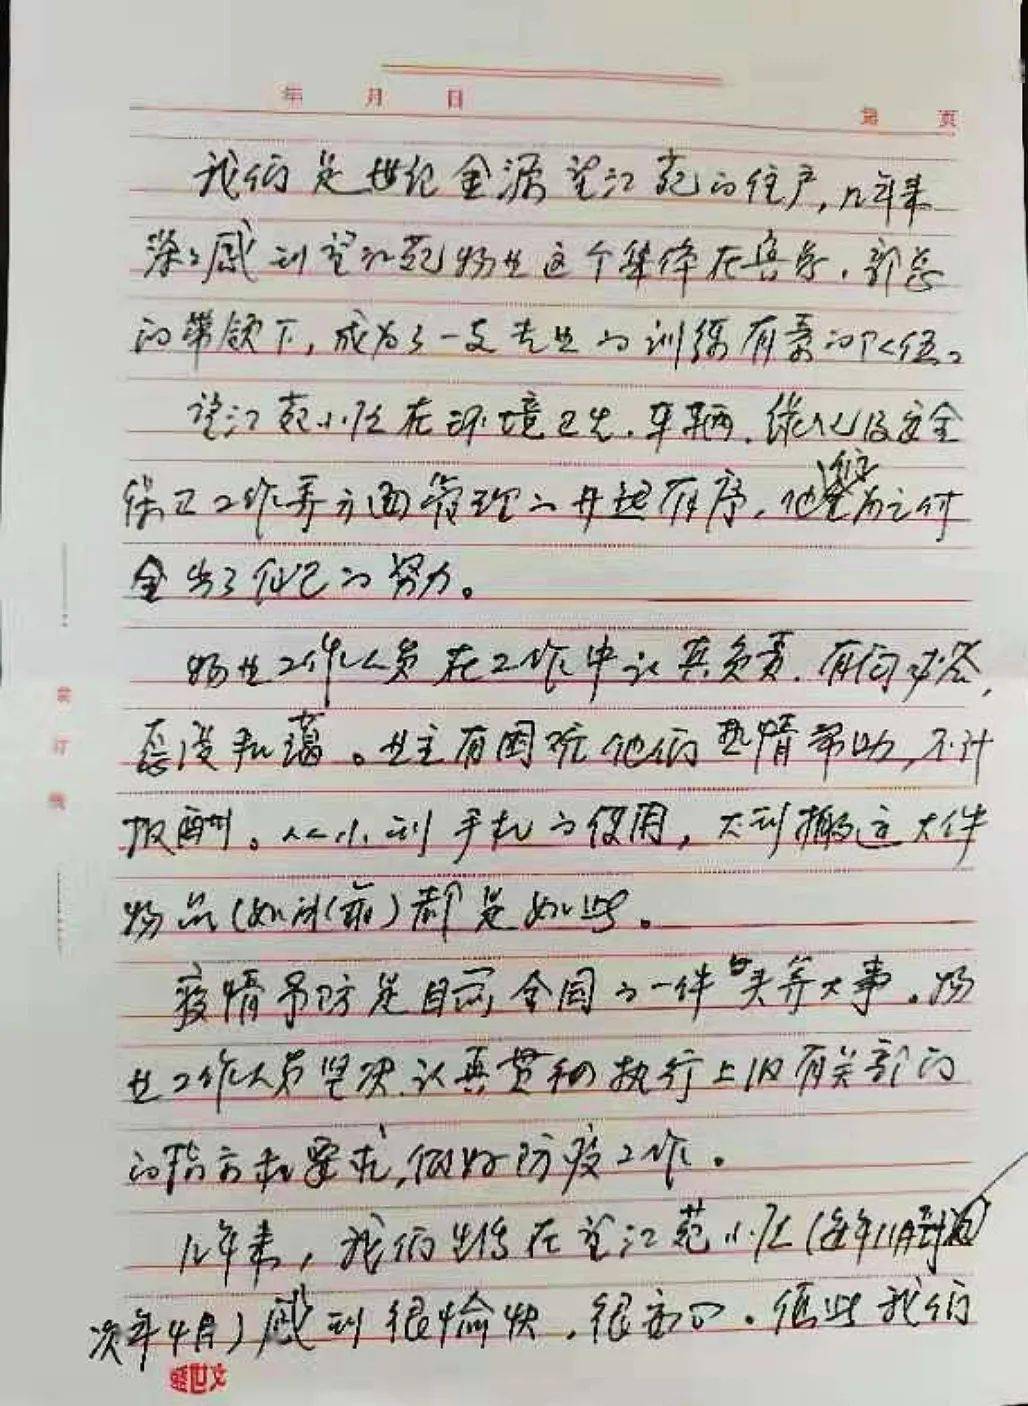 年 月 日
第 页
我们是世纪金源望江苑的住户,几年来
深深感到望江苑物业这个集体在
的带领下,成为了一支专业的训练有素的队伍。
望江苑小区在环境卫生、车辆、绿化及安全
保卫工作等方面管理的井然有序,他
出了自己的努力。
物业工作人员在工作中认真负责、有问必答,
态度和蔼。业主有困难他们热情帮助,不计
报酬。从小到手机的使用,大到搬运大件
物品(如冰箱)都是如此。
疫情预防是目前全国的一件头等大事。物
业工作人员坚决、认真贯彻执行上级有关部门
的指示和要求,做好防疫工作。
几年来,我们生活在望江苑小区(每年11月到
次年4月)感到很愉快、很。借此我们
装
订
线